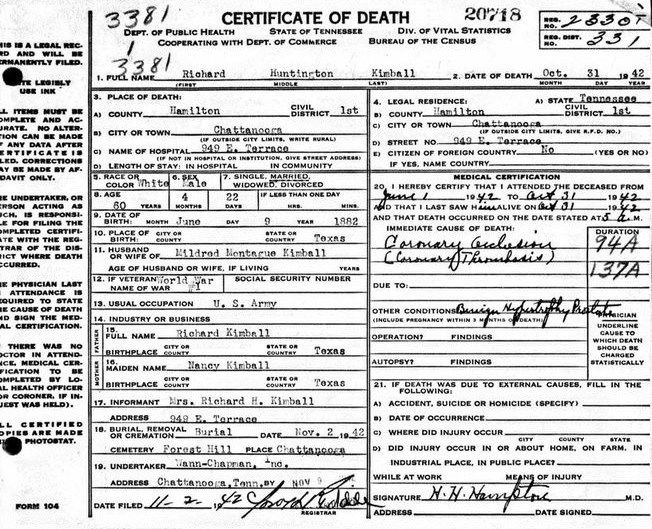 3381
CERTIFICATE OF DEATH
20718
REG. NO. 2330T
DEPT. OF PUBLIC HEALTH STATE OF TENNESSEE DIV. OF VITAL STATISTICS
COOPERATING WITH DEPT. OF COMMERCE BUREAU OF THE CENSUS
REG. DIST. 331
3381
1. FULL NAME Richard Huntington Kimball
(FIRST) MIDDLE LAST)
2. DATE OF DEATH Oct. 31 1942
MONTH DAY YEAR
3. PLACE OF DEATH:
A) COUNTY Hamilton CIVIL DISTRICT 1st
B) CITY OR TOWN Chattanooga
(IF OUTSIDE CITY LIMITS, WRITE RURAL)
C) NAME OF HOSPITAL 949 E. Terrace
(IF NOT IN HOSPITAL OR INSTITUTION, GIVE STREET ADDRESS)
D) LENGTH OF STAY: IN HOSPITAL IN COMMUNITY
4. LEGAL RESIDENCE: A) STATE Tennessee
B) COUNTY Hamilton CIVIL DISTRICT 1st
C) CITY OR TOWN Chattanooga
(IF OUTSIDE CITY LIMITS, GIVE R.F.D. NO.)
D) STREET NO. 949 E. Terrace
E) CITIZEN OF FOREIGN COUNTRY No (YES OR NO)
IF YES, NAME COUNTRY
5. RACE OR COLOR White 6. SEX Male 7. SINGLE, MARRIED, WIDOWED, DIVORCED
8. AGE 60 YEARS 4 MONTHS 22 DAYS IF LESS THAN ONE DAY HRS. MINS.
9. DATE OF BIRTH: MONTH June DAY 9 YEAR 1882
10. PLACE OF BIRTH: CITY OR COUNTY STATE OR COUNTRY Texas
11. HUSBAND OR WIFE OF Mildred Montague Kimball
AGE OF HUSBAND OR WIFE, IF LIVING YEARS
12. IF VETERAN NAME OF WAR World War #1 SOCIAL SECURITY NUMBER
13. USUAL OCCUPATION U. S. Army
14. INDUSTRY OR BUSINESS
FATHER
15. FULL NAME Richard Kimball
BIRTHPLACE CITY OR COUNTY STATE OR COUNTRY Texas
MOTHER
16. MAIDEN NAME Nancy Kimball
BIRTHPLACE CITY OR COUNTY STATE OR COUNTRY Texas
17. INFORMANT Mrs. Richard H. Kimball
ADDRESS 949 E. Terrace
18. BURIAL, REMOVAL OR CREMATION Burial DATE Nov. 2 1942
CEMETERY Forest Hill PLACE Chattanooga
19. UNDERTAKER Wann-Chapman, Inc.
ADDRESS Chattanooga, Tenn. BY NOV 9
DATE FILED 11-2-42
REGISTRAR
MEDICAL CERTIFICATION
20. I HEREBY CERTIFY THAT I ATTENDED THE DECEASED FROM
June 1 1942 TO Oct 31 1942
THAT I LAST SAW him ALIVE ON Oct 31 1942
AND THAT DEATH OCCURRED ON THE DATE STATED AT 5 A.M.
IMMEDIATE CAUSE OF DEATH: DURATION
Coronary occlusion 94A
(Coronary Thrombosis) 137A
DUE TO:
OTHER CONDITIONS: Benign Hypertrophy Prostate
(INCLUDE PREGNANCY WITHIN 3 MONTHS OF DEATH)
OPERATION? FINDINGS
AUTOPSY? FINDINGS
PHYSICIAN
UNDERLINE
CAUSE TO
WHICH DEATH
SHOULD BE
CHARGED
STATISTICALLY
21. IF DEATH WAS DUE TO EXTERNAL CAUSES, FILL IN THE
FOLLOWING:
A) ACCIDENT, SUICIDE OR HOMICIDE (SPECIFY)
B) DATE OF OCCURRENCE
C) WHERE DID INJURY OCCUR
D) DID INJURY OCCUR IN OR ABOUT HOME, ON FARM, IN
INDUSTRIAL PLACE, IN PUBLIC PLACE?
WHILE AT WORK MEANS OF INJURY
SIGNATURE H. H. Hampton M.D.
ADDRESS DATE SIGNED
HIS IS A LEGAL REC-
RD AND WILL BE
ERMANENTLY FILED.
TE LEGIBLY
USE INK
LL ITEMS MUST BE
OMPLETE AND AC-
URATE. NO ALTER-
TION CAN BE MADE
F ANY DATA AFTER
ERTIFICATE IS
ILED. CORRECTIONS
AY BE MADE BY AF-
DAVIT ONLY.
HE UNDERTAKER, OR
ERSON ACTING AS
UCH, IS RESPONSIB-
E FOR FILING THE
OMPLETED CERTIFI-
ATE WITH THE REG-
TRAR OF THE DIS-
ICT WHERE DEATH
CCURRED.
HE PHYSICIAN LAST
N ATTENDANCE IS
EQUIRED TO STATE
HE CAUSE OF DEATH
ND SIGN THE MEDI-
AL CERTIFICATION.
THERE WAS NO
OCTOR IN ATTEND-
NCE, MEDICAL CER-
FICATION TO BE
OMPLETED BY LO-
AL HEALTH OFFICER
R CORONER, IF IN-
UEST WAS HELD).
LL CERTIFIED
OPIES ARE MADE
Y PHOTOSTAT.
FORM 104